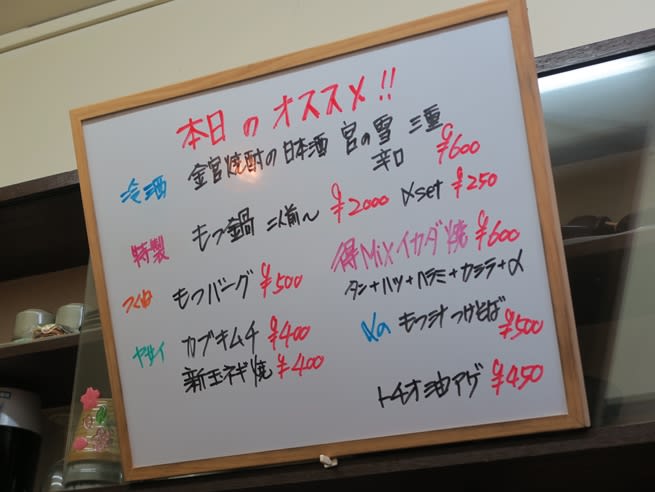 本日のオススメ!!
冷酒 金宮焼酎の日本酒 宮の雪 三重 辛口 ¥600
特製 もつ鍋 二人前〜 ¥2000 〆set ¥250
つくね もつバーグ ¥500
得Mixイカダ焼 ¥600
タン+ハツ+ハラミ+カシラ+α
ヤサイ カブキムチ ¥400
新玉ネギ焼 ¥400
もつ汁つけそば ¥500
トチオ油アゲ ¥450